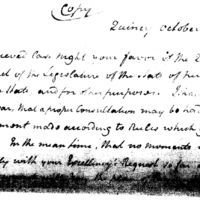 Copy
Quincy october
ceived last night your favor of the 2
of the Legislature of the State of
State, and for other purposes. I have
that a proper Consultation may be had
ment made according to Rules which
In the mean time, I had no moments
ly with your Excellency's Request so far